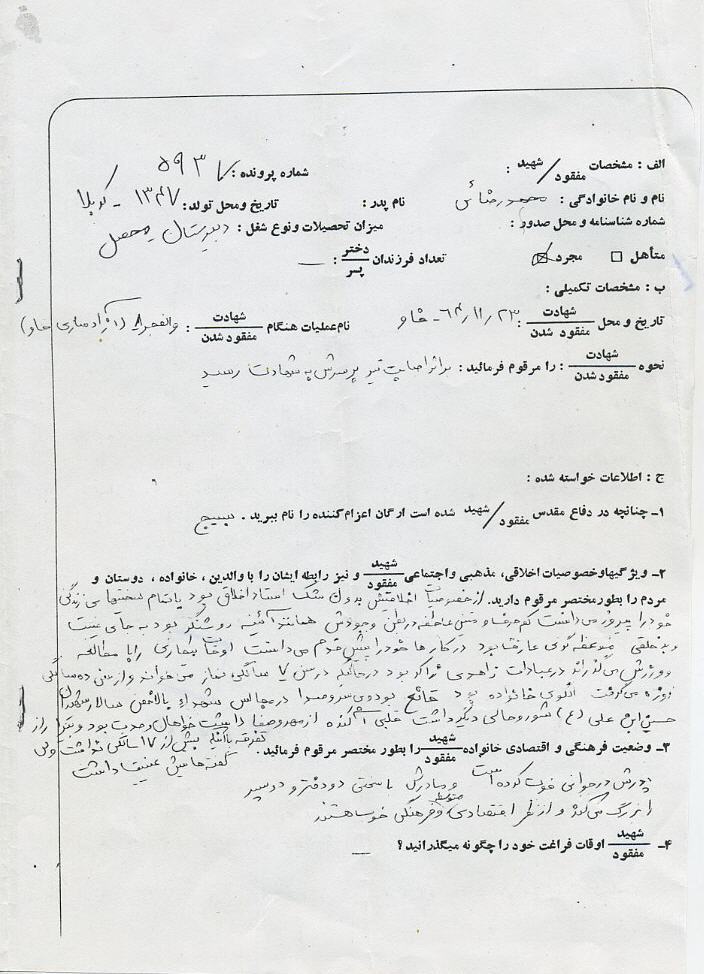 الف : مشخصات شهید/مفقود :
شماره پرونده : ۵۹۳۷
نام و نام خانوادگی : محمود رضائی
نام پدر :
تاریخ و محل تولد : ۱۳۴۷ -
شماره شناسنامه و محل صدور :
میزان تحصیلات و نوع شغل : دبیرستان - محصل
متأهل □ مجرد ☒
تعداد فرزندان دختر/پسر : —
ب : مشخصات تکمیلی :
تاریخ و محل شهادت/مفقود شدن : ۶۴/۱۱/۲۳ - فاو
نام عملیات هنگام شهادت/مفقود شدن : والفجر ۸ (آزادسازی فاو)
نحوه شهادت/مفقود شدن : را مرقوم فرمائید : بر اثر اصابت تیر بر سرش به شهادت رسید
ج : اطلاعات خواسته شده :
۱- چنانچه در دفاع مقدس شهید/مفقود شده است ارگان اعزام کننده را نام ببرید . بسیج
۲- ویژگیها و خصوصیات اخلاقی، مذهبی و اجتماعی شهید/مفقود و نیز رابطه ایشان را با والدین ، خانواده ، دوستان و
مردم را بطور مختصر مرقوم دارید. از خصوصیات اخلاقیش بدون شک استاد اخلاق بود با تمام سختیهای زندگی
خود را پیروز می داشت کم حرف و عاطفه در بطن وجودش همانند آئینه روشنگر بود به جای غیبت
و بدخلقی موعظه گوی عارف بود در کارها خود را پیش قدم می داشت اوقات بیکاری را با مطالعه
و ورزش می گذراند در عبادات زاهدی ذاکر بود در سن ۷ سالگی نماز می خواند و از سن ده سالگی
روزه می گرفت الگوی خانواده بود قانع بود در مجالس شهداء بالاخص سالار شهیدان
حسین ابن علی (ع) شور و حالی دیگر داشت قلبی آکنده از مهر و صفا داشت خواهان وحدت بود و
تفرقه بیش از ۱۷ سالگی نداشت ولی
گفته هایش عینیت داشت
۳- وضعیت فرهنگی و اقتصادی خانواده شهید/مفقود را بطور مختصر مرقوم فرمائید .
پدرش در جوانی فوت کرده است و مادرش با سختی دو دختر و دو پسر
را بزرگ می کند و از نظر اقتصادی متوسط و فرهنگی خوب هستند
۴- شهید/مفقود اوقات فراغت خود را چگونه میگذرانید ؟
—